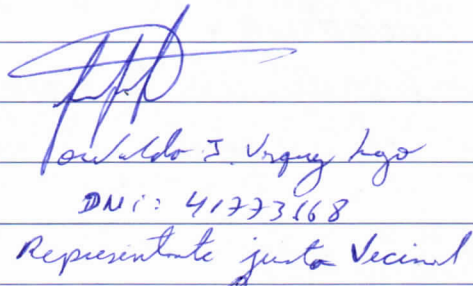 Oswaldo J. Vasquez Lugo
DNI: 41773168
Representante junta Vecinal